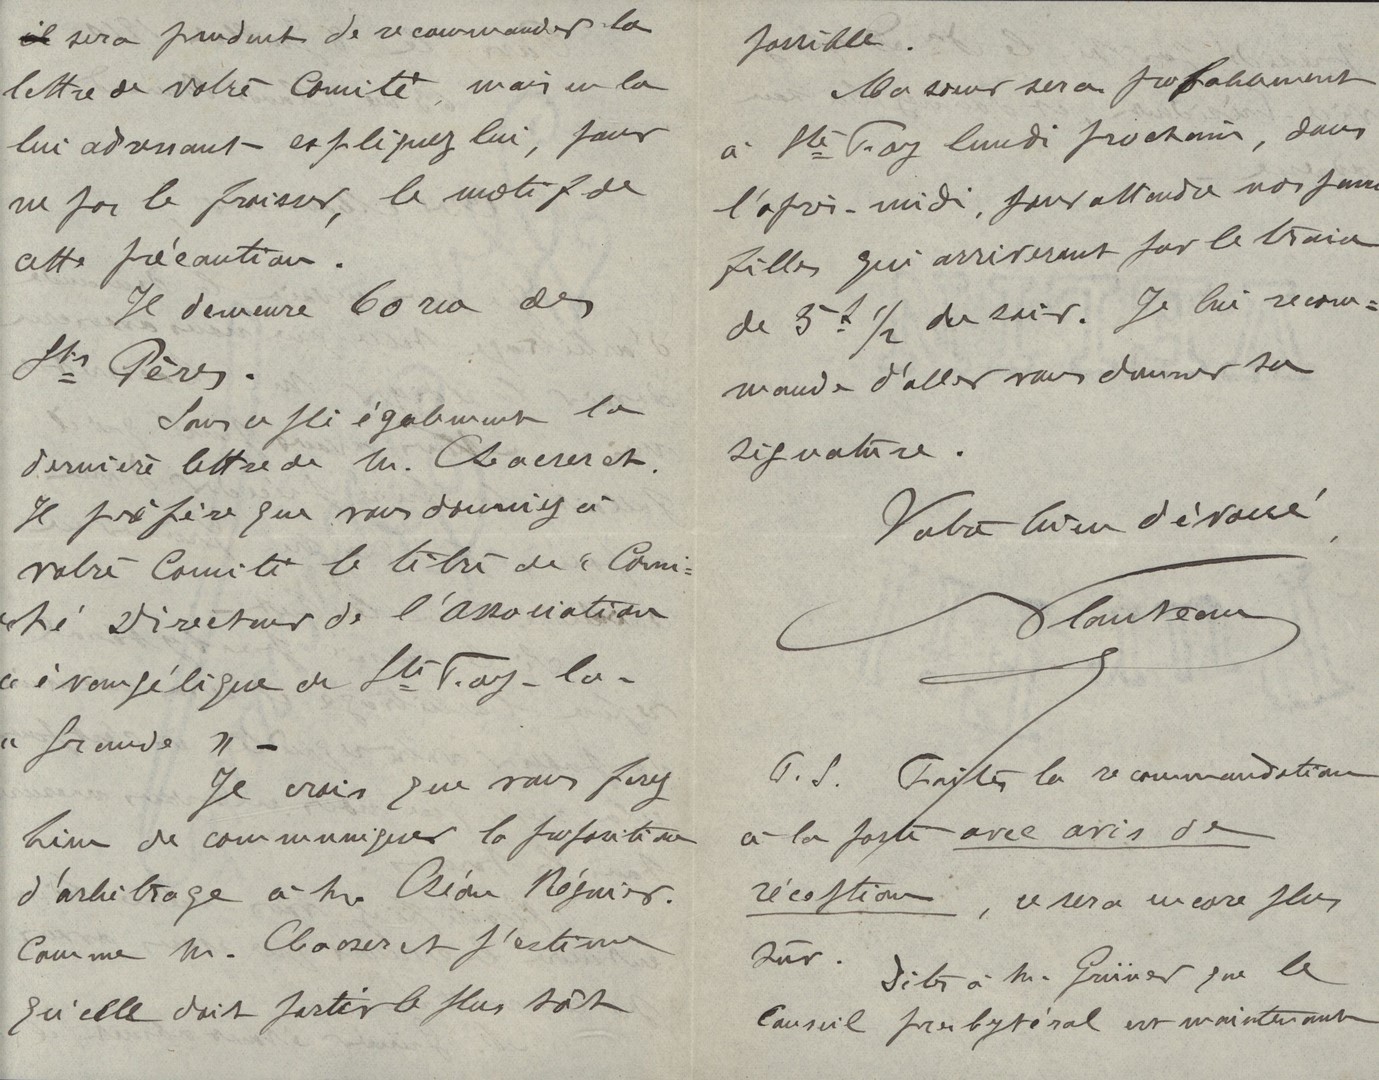 il sera prudent de recommander la
lettre de votre Comité, mais en la
lui adressant expliquez lui, pour
ne pas le froisser, le motif de
cette précaution.
Il demeure 60 rue des
Sts Pères.
Sous ce pli également la
dernière lettre de M.
Je préfère que vous donniez à
votre Comité le titre de " Comi=
" té Directeur de l'Association
" évangélique de Ste Foy-la-
" Grande " -
Je crois que vous ferez
bien de communiquer la proposition
d'arbitrage à M. Cléon Régnier.
Comme M. j'estime
qu'elle doit partir le plus tôt
possible.
Ma soeur sera probablement
à Ste Foy lundi prochain, dans
l'après-midi, pour attendre nos
filles qui arriveront par le train
de 5h 1/2 du soir. Je lui recom=
mande d'aller vous donner sa
signature.
Votre bien dévoué,
Planteau
P. S. Faites la recommandation
à la poste avec avis de
réception, ce sera encore plus
sûr.
Dites à M. que le
Conseil presbytéral est maintenant